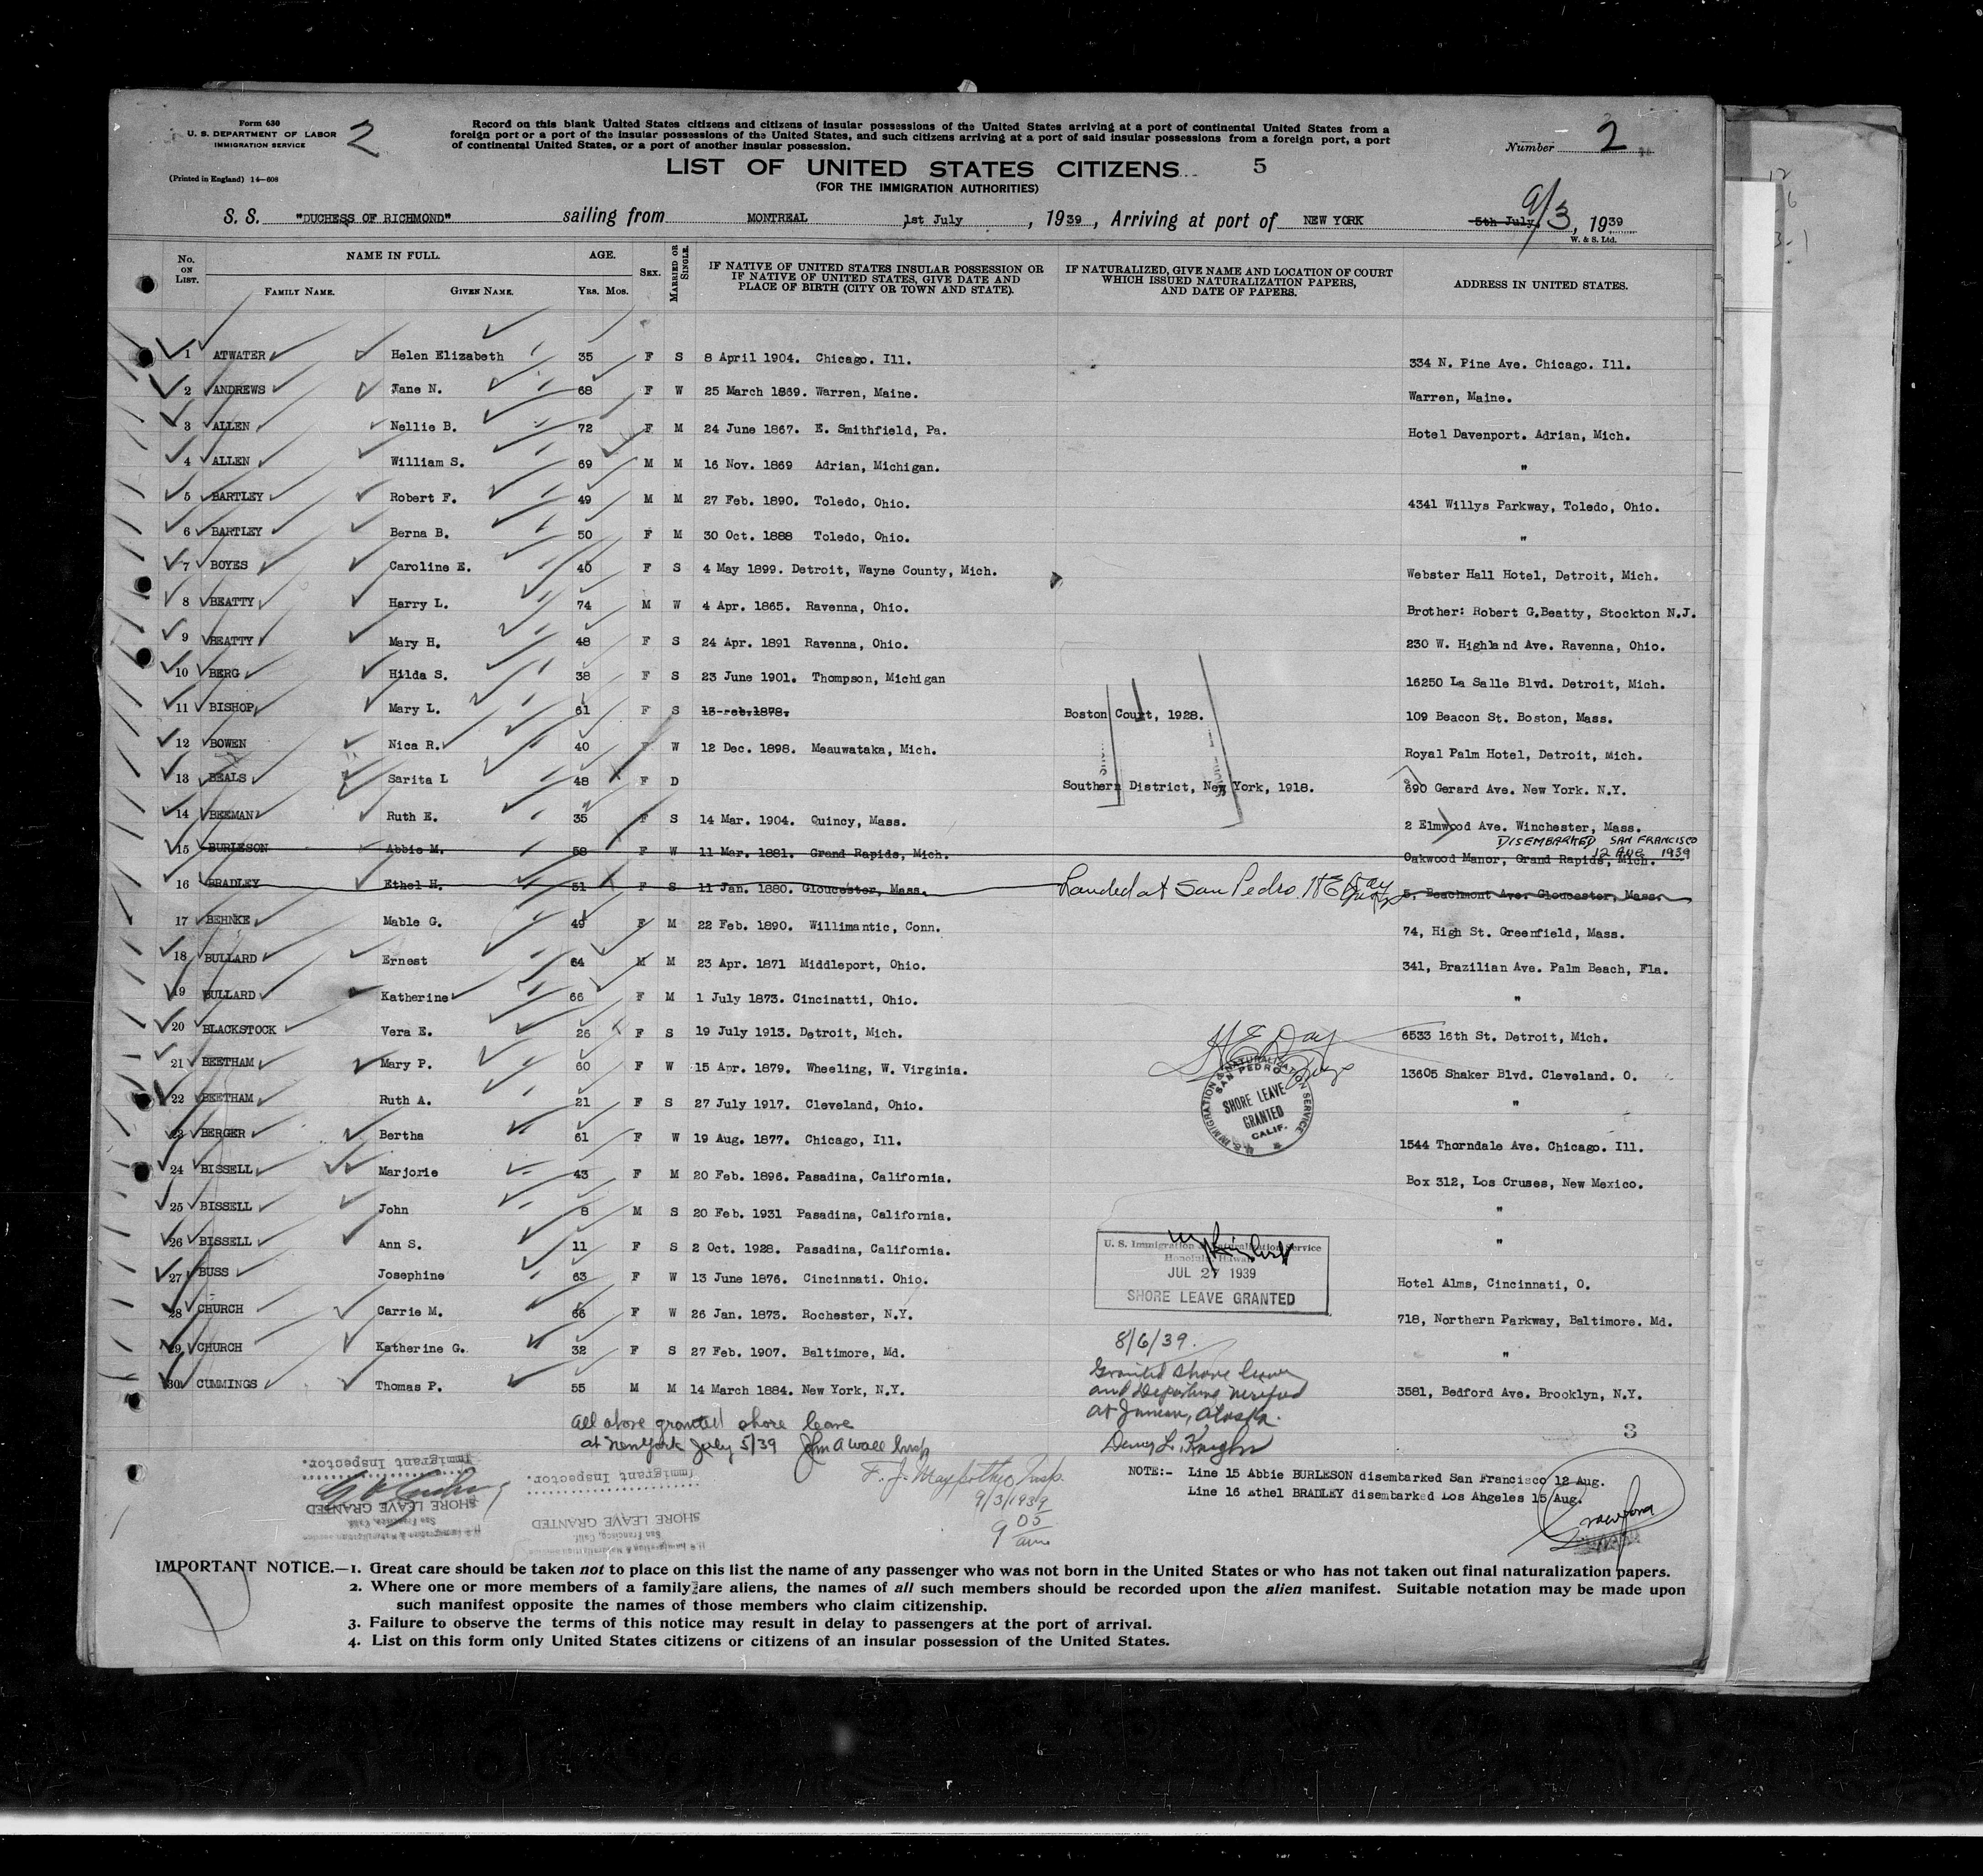 Form 630
U. S. DEPARTMENT OF LABOR
IMMIGRATION SERVICE
2
(Printed in England) 14—608
Record on this blank United States citizens and citizens of insular possessions of the United States arriving at a port of continental United States from a
foreign port or a port of the insular possessions of the United States, and such citizens arriving at a port of said insular possessions from a foreign port, a port
of continental United States, or a port of another insular possession.
LIST OF UNITED STATES CITIZENS 5
(FOR THE IMMIGRATION AUTHORITIES)
Number 2
S. S. "DUCHESS OF RICHMOND" sailing from MONTREAL 1st July, 1939, Arriving at port of NEW YORK 5th July, 9/3, 1939
W. & S. Ltd.
No. ON LIST. NAME IN FULL. FAMILY NAME. GIVEN NAME. AGE. Yrs. Mos. SEX. MARRIED OR SINGLE. IF NATIVE OF UNITED STATES INSULAR POSSESSION OR IF NATIVE OF UNITED STATES, GIVE DATE AND PLACE OF BIRTH (CITY OR TOWN AND STATE). IF NATURALIZED, GIVE NAME AND LOCATION OF COURT WHICH ISSUED NATURALIZATION PAPERS, AND DATE OF PAPERS. ADDRESS IN UNITED STATES.
1 ATWATER Helen Elizabeth 35 F S 8 April 1904. Chicago. Ill. 334 N. Pine Ave. Chicago. Ill.
2 ANDREWS Jane N. 68 F W 25 March 1869. Warren, Maine. Warren, Maine.
3 ALLEN Nellie B. 72 F M 24 June 1867. E. Smithfield, Pa. Hotel Davenport. Adrian, Mich.
4 ALLEN William S. 69 M M 16 Nov. 1869 Adrian, Michigan. "
5 BARTLEY Robert F. 49 M M 27 Feb. 1890. Toledo, Ohio. 4341 Willys Parkway, Toledo, Ohio.
6 BARTLEY Berna B. 50 F M 30 Oct. 1888 Toledo, Ohio. "
7 BOYES Caroline E. 40 F S 4 May 1899. Detroit, Wayne County, Mich. Webster Hall Hotel, Detroit, Mich.
8 BEATTY Harry L. 74 M W 4 Apr. 1865. Ravenna, Ohio. Brother: Robert G.Beatty, Stockton N.J.
9 BEATTY Mary H. 48 F S 24 Apr. 1891 Ravenna, Ohio. 230 W. Highland Ave. Ravenna, Ohio.
10 BERG Hilda S. 38 F S 23 June 1901. Thompson, Michigan 16250 La Salle Blvd. Detroit, Mich.
11 BISHOP Mary L. 61 F S 15 Feb.1878. Boston Court, 1928. 109 Beacon St. Boston, Mass.
12 BOWEN Nica R. 40 F W 12 Dec. 1898. Meauwataka, Mich. Royal Palm Hotel, Detroit, Mich.
13 BEALS Sarita L 48 F D Southern District, New York, 1918. 690 Gerard Ave. New York. N.Y.
14 BEEMAN Ruth E. 35 F S 14 Mar. 1904. Quincy, Mass. 2 Elmwood Ave. Winchester, Mass.
DISEMBARKED SAN FRANCISCO
12 AUG 1939
15 BURLESON Abbie M. 58 F W 11 Mar. 1881. Grand Rapids, Mich. Oakwood Manor, Grand Rapids, Mich.
16 BRADLEY Ethel H. 51 F S 11 Jan. 1880. Gloucester, Mass. Landed at San Pedro. H E Day 5, Beachmont Ave. Gloucester, Mass.
17 BEHNKE Mable G. 49 F M 22 Feb. 1890. Willimantic, Conn. 74, High St. Greenfield, Mass.
18 BULLARD Ernest 64 M M 23 Apr. 1871 Middleport, Ohio. 341, Brazilian Ave. Palm Beach, Fla.
19 BULLARD Katherine 66 F M 1 July 1873. Cincinatti, Ohio. "
20 BLACKSTOCK Vera E. 26 F S 19 July 1913. Detroit, Mich. 6533 16th St. Detroit, Mich.
21 BEETHAM Mary P. 60 F W 15 Apr. 1879. Wheeling, W. Virginia. 13605 Shaker Blvd. Cleveland. O.
22 BEETHAM Ruth A. 21 F S 27 July 1917. Cleveland, Ohio. "
23 BERGER Bertha 61 F W 19 Aug. 1877. Chicago, Ill. 1544 Thorndale Ave. Chicago. Ill.
24 BISSELL Marjorie 43 F M 20 Feb. 1896. Pasadina, California. Box 312, Los Cruses, New Mexico.
25 BISSELL John 8 M S 20 Feb. 1931 Pasadina, California. "
26 BISSELL Ann S. 11 F S 2 Oct. 1928. Pasadina, California. "
27 BUSS Josephine 63 F W 13 June 1876. Cincinnati. Ohio. Hotel Alms, Cincinnati, O.
28 CHURCH Carrie M. 66 F W 26 Jan. 1873. Rochester, N.Y. 718, Northern Parkway, Baltimore. Md.
29 CHURCH Katherine G. 32 F S 27 Feb. 1907. Baltimore, Md. "
30 CUMMINGS Thomas P. 55 M M 14 March 1884. New York, N.Y. 3581, Bedford Ave. Brooklyn, N.Y.
H E Day
U.S. IMMIGRATION & NATURALIZATION SERVICE
SAN PEDRO
SHORE LEAVE
GRANTED
CALIF.
U. S. Immigration & Naturalization Service
Honolulu Hawaii
JUL 27 1939
SHORE LEAVE GRANTED
8/6/39.
Granted shore leave
and departure verified
at Juneau, Alaska.
Dewey L. Knight
3
all above granted shore leave
at New York July 5/39 John A Wall Insp
Immigrant Inspector.
SHORE LEAVE GRANTED
San Francisco, Calif.
U S Immigration & Naturalization Service
Immigrant Inspector.
SHORE LEAVE GRANTED
San Francisco, Calif.
U S Immigration & Naturalization Service
Insp.
9/3/1939
9 05 am
NOTE:- Line 15 Abbie BURLESON disembarked San Francisco 12 Aug.
Line 16 Ethel BRADLEY disembarked Los Angeles 15 Aug.
IMPORTANT NOTICE.—1. Great care should be taken not to place on this list the name of any passenger who was not born in the United States or who has not taken out final naturalization papers.
2. Where one or more members of a family are aliens, the names of all such members should be recorded upon the alien manifest. Suitable notation may be made upon
such manifest opposite the names of those members who claim citizenship.
3. Failure to observe the terms of this notice may result in delay to passengers at the port of arrival.
4. List on this form only United States citizens or citizens of an insular possession of the United States.